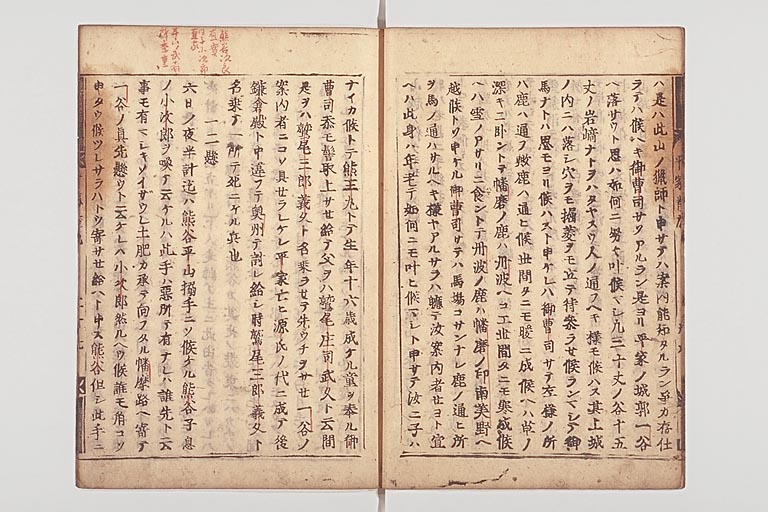 ハ是ハ此山ノ猟師ト申サテハ案内能知タルラン争カ存仕
ラテハ候ヘキ御曹司サソアルラン是ヨリ平家ノ城郭一谷
ヘ落サウト思ハ如何ニ努々叶候マシ凡三十丈ノ谷十五
丈ノ岩﨑ナトヲハタヤスウ人ノ通フヘキ様モ候ハス其上城
ノ内ニハ落シ穴ヲモ掘菱ヲモ立テ待参ラせ候ランマシテ御
馬ナトハ思モヨリ候ハスト申ケレハ御曹司サテ左様ノ所
ハ鹿ハ通フ歟鹿ハ通ヒ候世間タニモ暖ニ成候ヘハ草ノ
深キニ臥ントテ幡磨ノ鹿ハ丹波ヘコエ世間タニモ寒成候
ヘハ雪ノアサリニ食ントテ丹波ノ鹿ハ幡磨ノ印南美野ヘ
越候トソ申ケル御曹司サテハ馬場コサンナレ鹿ノ通ヒ所
ヲ馬ノ通ハサルヘキ様ヤアルサラハ軈テ汝案内者せヨト宣
ヘハ此身ハ年老テ如何ニモ叶ヒ候マシト申サテ汝ニ子ハ
ナイカ候トテ熊王丸トテ生年十六歳成ケル童ヲ奉ル御
曹司忝モ髻取上サせ給テ父ヲハ鷲尾庄司武久ト云間
是ヲハ鷲尾三郎義久ト名乗ラせテ先ウチヲサせ一谷ノ
案内者ニコソ具せラレケレ平家亡ヒ源氏ノ代ニ成テ後
鎌倉殿ト中違フテ奥州テ討レ給シ時鷲尾三郎義久ト
名乗テ一所テ死ニケル兵也
一二懸
六日ノ夜半計迄ハ熊谷平山搦手ニソ候ケル熊谷子息
ノ小次郎ヲ喚テ云ケルハ此手ハ悪所テ有ナレハ誰先ト云
事モ有マシキソイサウレ土肥カ承テ向フタル幡磨路ヘ寄テ
一谷ノ真先懸ウト云ケレハ小次郎然ルヘウ候誰モ角コソ
申タウ候ツレサラハトウ寄サせ給ヘト申ス熊谷但シ此手ニ